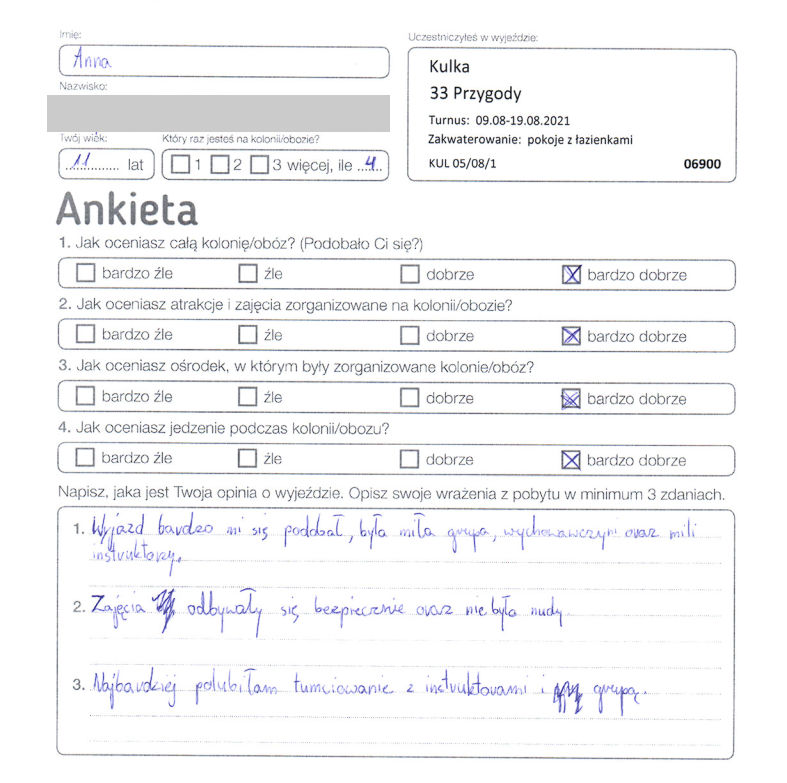 Imię:
Anna
Nazwisko:
Twój wiek:
11 lat
Który raz jesteś na kolonii/obozie?
1 2 3 więcej, ile 4
Uczestniczyłeś w wyjeździe:
Kulka
33 Przygody
Turnus: 09.08-19.08.2021
Zakwaterowanie: pokoje z łazienkami
KUL 05/08/1 06900
Ankieta
1. Jak oceniasz całą kolonię/obóz? (Podobało Ci się?)
bardzo źle źle dobrze X bardzo dobrze
2. Jak oceniasz atrakcje i zajęcia zorganizowane na kolonii/obozie?
bardzo źle źle dobrze X bardzo dobrze
3. Jak oceniasz ośrodek, w którym były zorganizowane kolonie/obóz?
bardzo źle źle dobrze X bardzo dobrze
4. Jak oceniasz jedzenie podczas kolonii/obozu?
bardzo źle źle dobrze X bardzo dobrze
Napisz, jaka jest Twoja opinia o wyjeździe. Opisz swoje wrażenia z pobytu w minimum 3 zdaniach.
1. Wyjazd bardzo mi się poddobał, była miła grupa, wychowawczyni oraz mili
instruktorzy.
2. Zajęcia odbywały się bezpiecznie oraz nie było nudy
3. Najbardziej polubiłam tumciowanie z instruktorami i grupą.